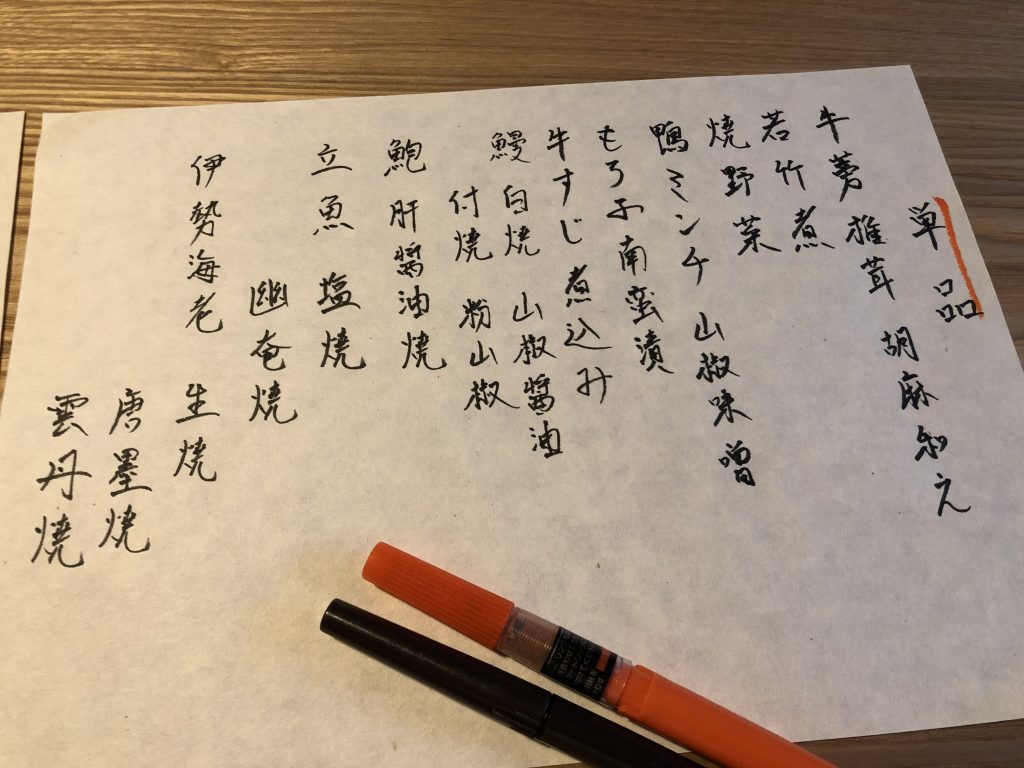 単品
牛蒡 椎茸 胡麻和え
若竹煮
焼野菜
鴨ミンチ 山椒味噌
もろ子南蛮漬
牛すじ 煮込み
鰻 白焼 山椒醤油
付焼 粉山椒
鮑 肝醤油焼
立魚 塩焼
幽奄焼
伊勢海老 生焼
唐墨焼
雲丹焼